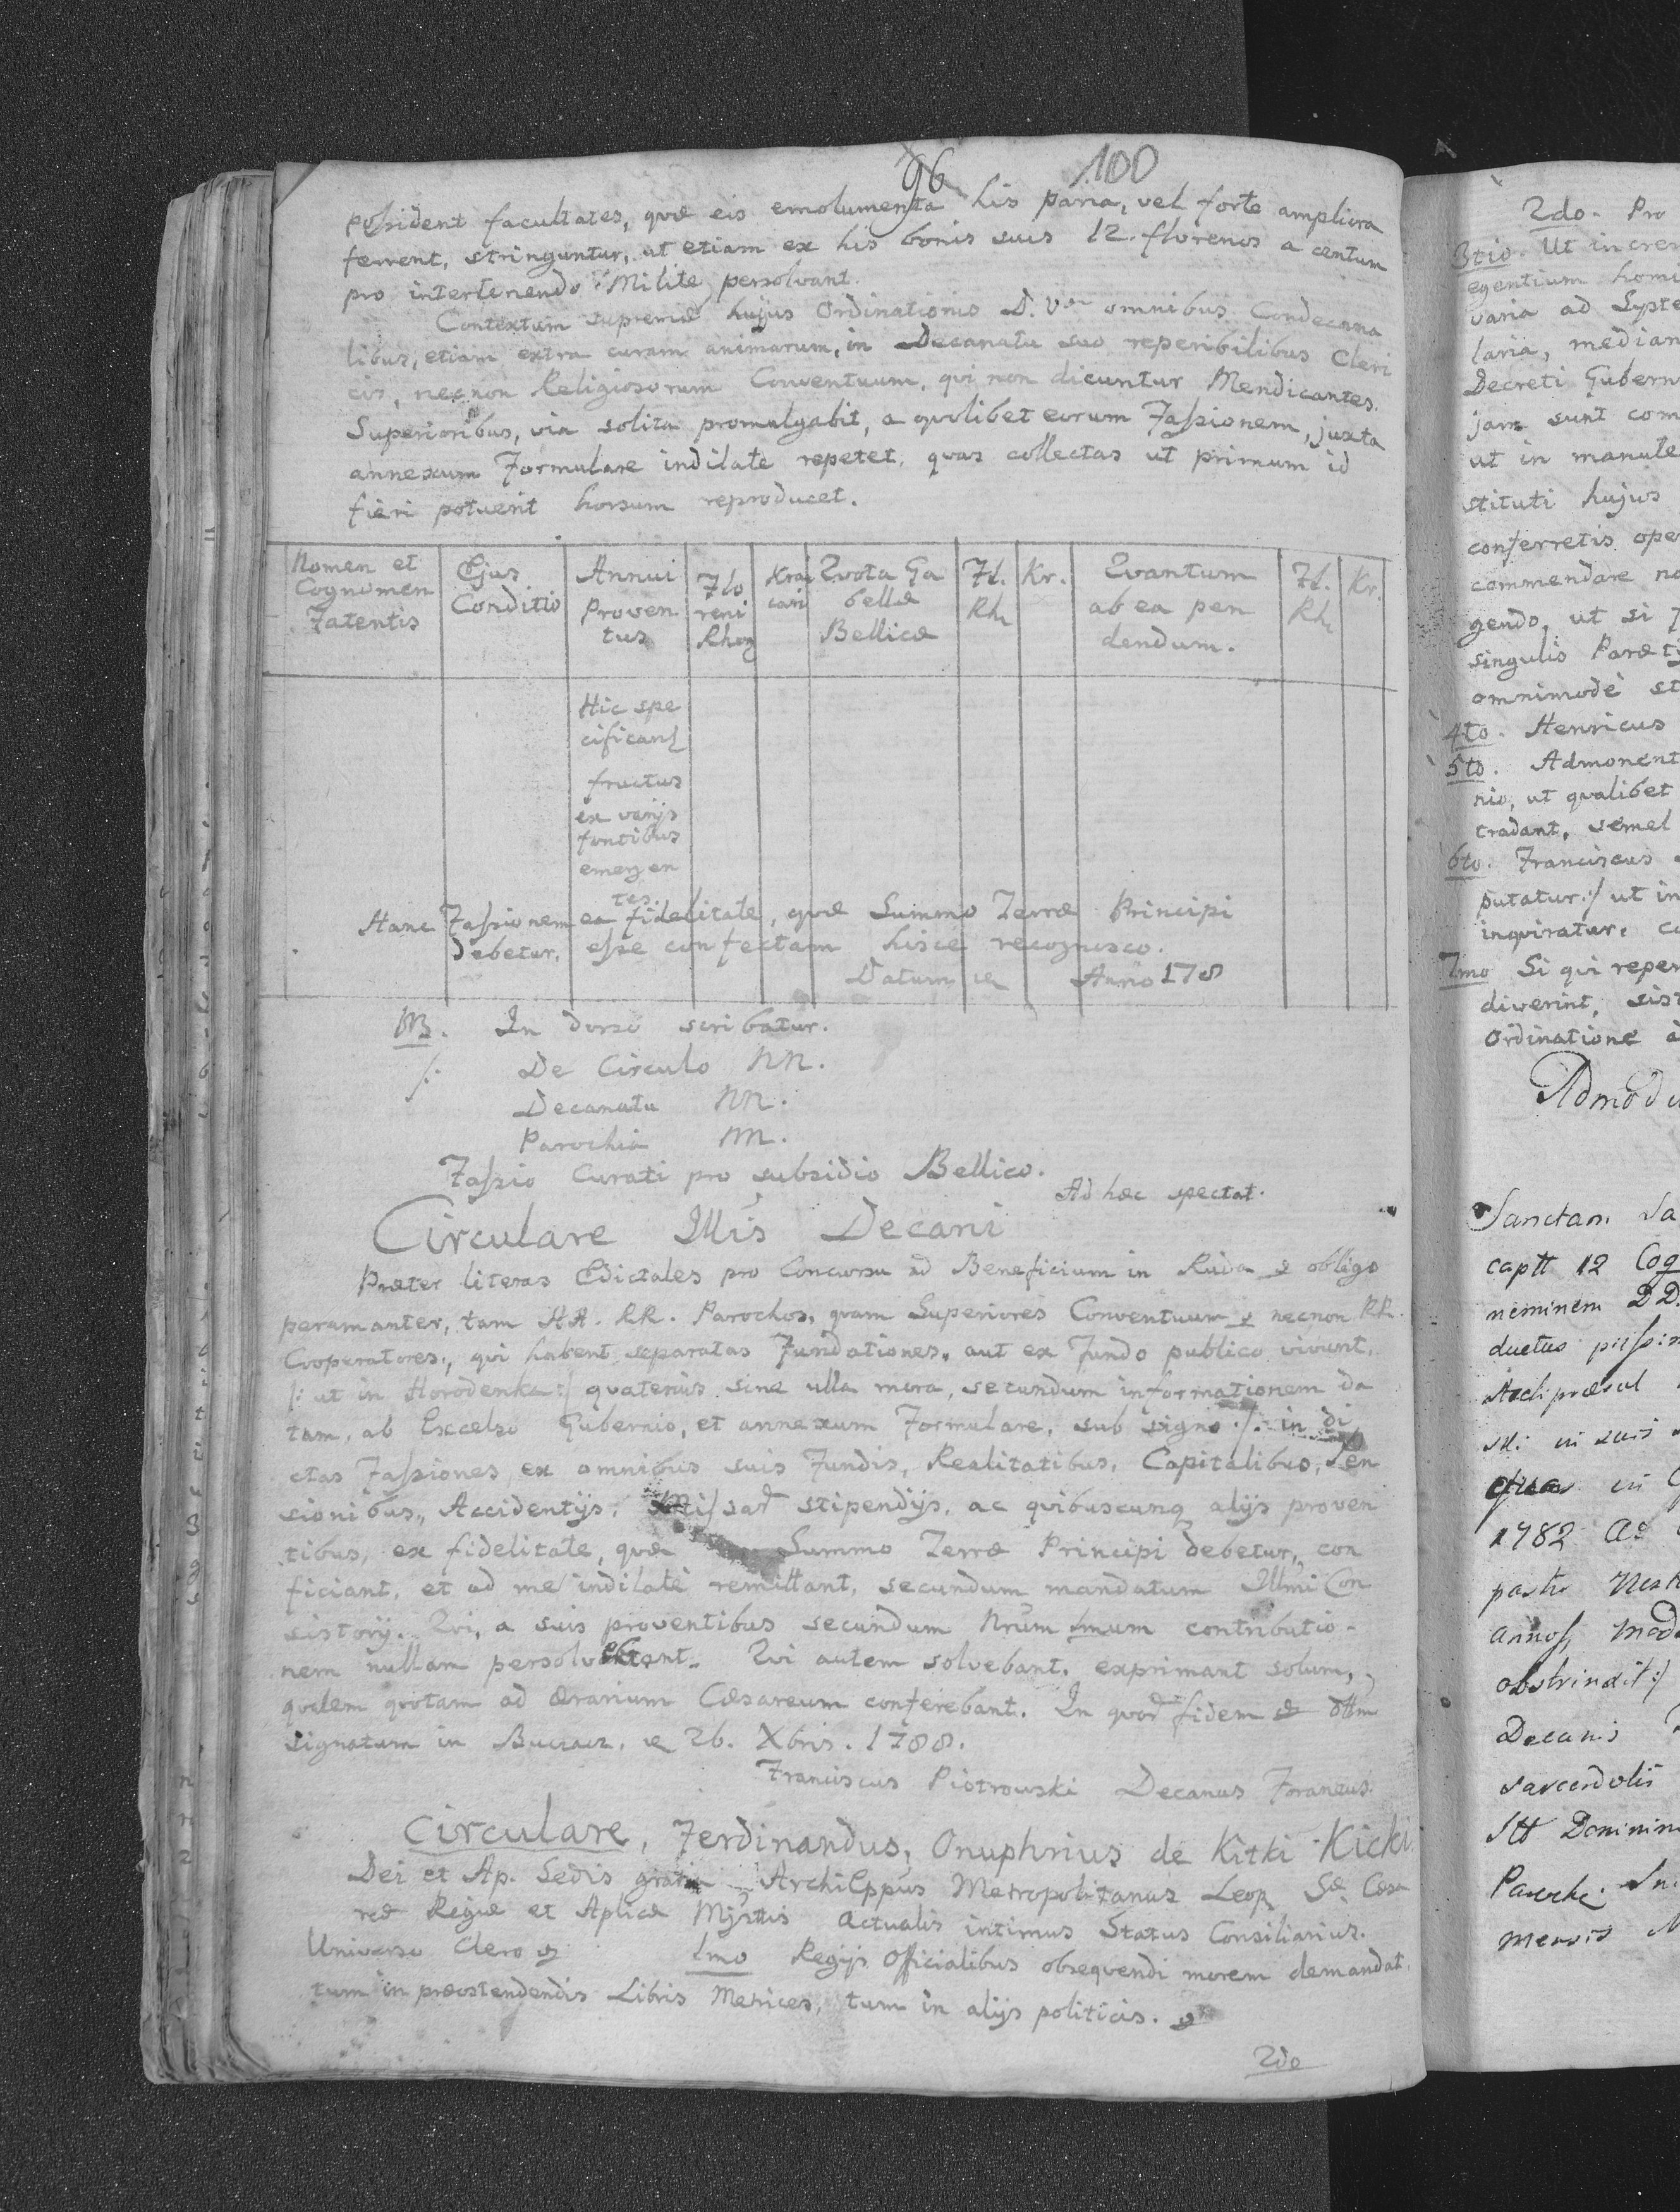 96 100
possident facultates, quæ eis emolumenta his paria, vel forte ampliora
ferrent, stringuntur, ut etiam ex his bonis suis 12. florenos a centum
pro intertenendo Milite, persolvant.
Contextum supremæ hujus Ordinationis D. Vra omnibus Condecana
libus, etiam extra curam animarum, in Decanatu suo reperibilibus Cleri
cis, necnon Religiosorum Conventuum, qui non dicuntur Mendicantes.
Superioribus, via solita promulgabit, a quolibet eorum Fassionem, juxta
annexum Formulare indilate repetet, quas collectas ut primum id
fieri potuerit horsum reproducet.
Nomen et Cognomen Fatentis | Ejus Conditio | Annui Proven tus | Flo reni Rhen | Krai cari | Quota Ga bellæ Bellicæ | Fl. Rh | Kr. | Quantum ab ea pen dendum. | Fl. Rh | Kr.
Hic spe
cificant
fructus
ex varijs
fontibus
emergen
tes.
Hanc Fassionem ea fidelitate, quæ Summo Terræ Principi
Debetur, esse confectam hisce recognosco.
Datum Anno 178
NB. In dorso scribatur.
/: De Circulo NN.
Decanatu NN.
Parochia NN.
Fassio Curati pro subsidio Bellico.
Ad hæc spectat.
Circulare Illis Decani
Præter literas Edictales pro Concursu ad Beneficium in obligo
peramanter, tam AA. RR. Parochos, quam Superiores Conventuum necnon RR.
Cooperatores, qui habent separatas Fundationes, aut ex Fundo publico vivunt,
/: ut in Horodenka :/ quatenus sine ulla mora, secundum informationem da
tam, ab Excelso Gubernio, et annexum Formulare, sub signo ./. in di
ctas Fassiones ex omnibus suis Fundis, Realitatibus, Capitalibus, Pen
sionibus, Accidentijs, stipendijs, ac quibuscunq alijs proven
tibus, ex fidelitate, quæ Summo Terræ Principi debetur, con
ficiant, et ad me indilate remittant, secundum mandatum Illmi Con
sistorij. Qui, a suis proventibus secundum Nrum 1mum contributio-
nem nullam persolvebant. Qui autem solvebant, exprimant solum,
qualem quotam ad ærarium Cæsareum conferebant. In quor fidem
signatum in Buczacz, 26. Xbris. 1788.
Franciscus Piotrowski Decanus Foraneus
Circulare, Ferdinandus, Onuphrius de Kitki Kicki
Dei et Ap. Sedis gratia ArchiEppus Metropolitanus Leop. Sæ Cæsa
reæ Regiæ et Aplicæ Mjttis Actualis intimus Status Consiliarius.
Universo Clero 1mo Regijs Officialibus obsequendi morem demandat,
tum in præostendendis Libris Metrices, tum in alijs politicis.
2do
2do. Pro
3tio. Ut in
egentium homi
varia ad Septe
laria, median
Decreti Gubern
jam sunt com
ut in manute
stituti hujus
conferretis ope
commendare no
gendo, ut si
singulis
omnimodè st
4to. Henricus
5to. Admonent
nio, ut qualibet
tradant, semel
6to. Franciscus
putatur:/ ut in
inquiratur,
7mo Si qui reper
diverint, sist
Ordinatione à
Admodu
Sanctam Sa
captt 12
neminem DD.
ductus
Archipræsul
in suis
in
1782
annos
obstrinxit:/
Decanis
sacerdotis
Stt Dominin
Parochi.
mensis